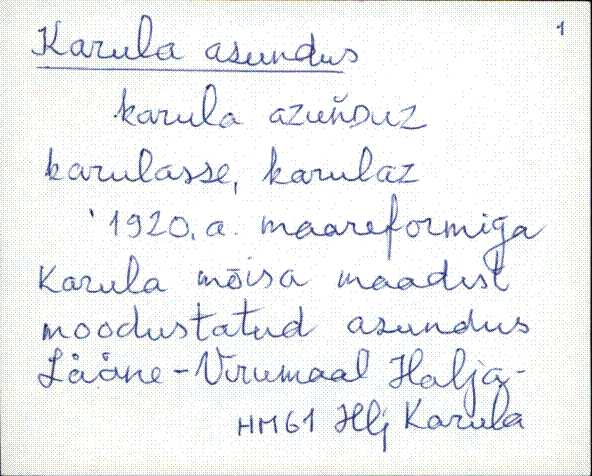 1
Karula asundus
karula azuňDuz
karulasse, karulaz
'1920.a. maareformiga
Karula mõisa maadest
moodustatud asundus
Lääne-Virumaal Halja-
HM61 Hlj Karula